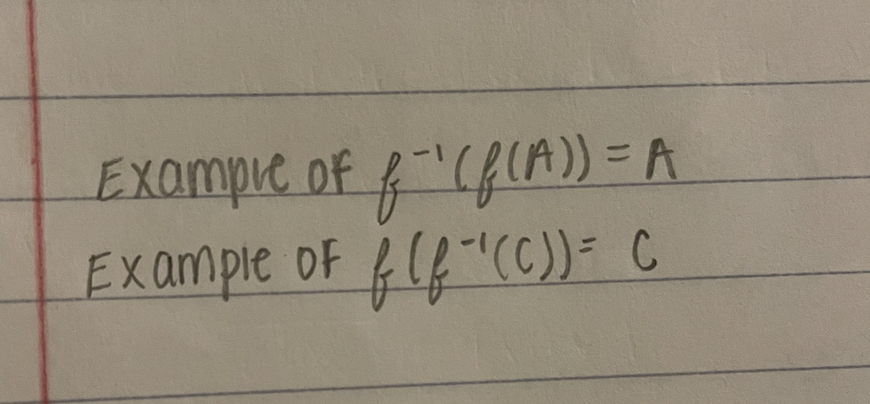 Example of f⁻¹(f(A)) = A
Example of f(f⁻¹(C)) = C